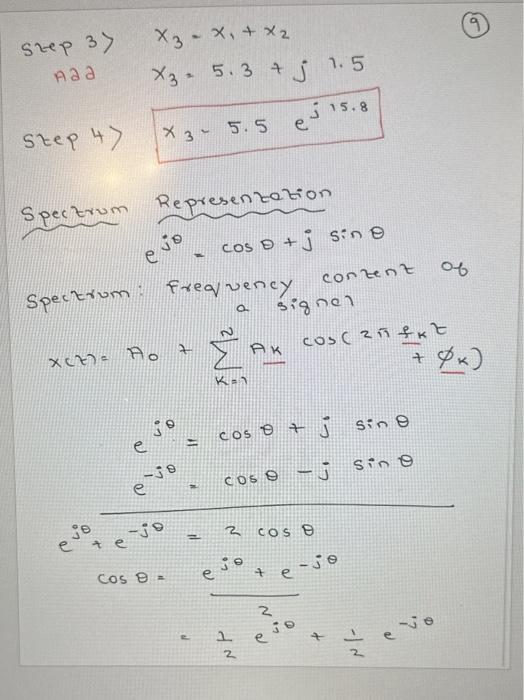 9
Step 3> x₃ = x₁ + x₂
Add x₃ = 5.3 + j 1.5
Step 4> x₃ = 5.5 e^{j 15.8}
Spectrum Representation
e^{jθ} = cos θ + j sin θ
Spectrum: Frequency content of
a signal
x(t) = A₀ + ∑_{K=1}^{N} A_K cos(2π f_K t
+ φ_K)
e^{jθ} = cos θ + j sin θ
e^{-jθ} = cos θ - j sin θ
e^{jθ} + e^{-jθ} = 2 cos θ
cos θ = (e^{jθ} + e^{-jθ}) / 2
= 1/2 e^{jθ} + 1/2 e^{-jθ}